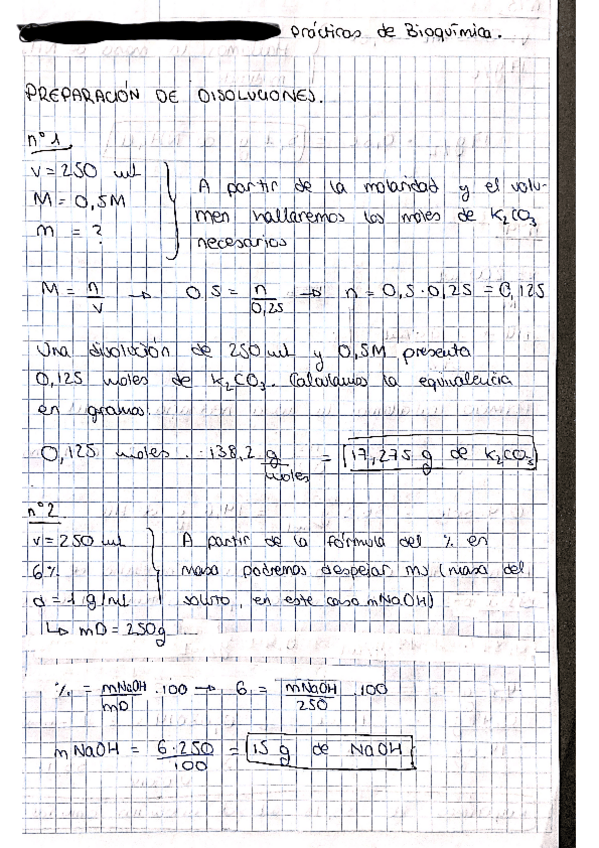 Prácticas de Bioquímica.
PREPARACIÓN DE DISOLUCIONES.
nº1
V = 250 ml
M = 0,5M
m = ?
A partir de la molaridad y el volu-
men hallaremos los moles de K₂CO₃
necesarios
M = n/V → 0,5 = n/0,25 → n = 0,5·0,25 = 0,125
Una disolución de 250 ml y 0,5M presenta
0,125 moles de K₂CO₃. Calculamos la equivalencia
en gramos:
0,125 moles · 138,2 g/moles = 17,275 g de K₂CO₃
nº2
V = 250 ml
6%
d = 1 g/ml
↳ mD = 250g
A partir de la fórmula del % en
masa podremos despejar ms (masa del
soluto, en este caso mNaOH)
% = mNaOH/mD · 100 → 6 = mNaOH/250 · 100
mNaOH = 6·250/100 = 15 g de NaOH